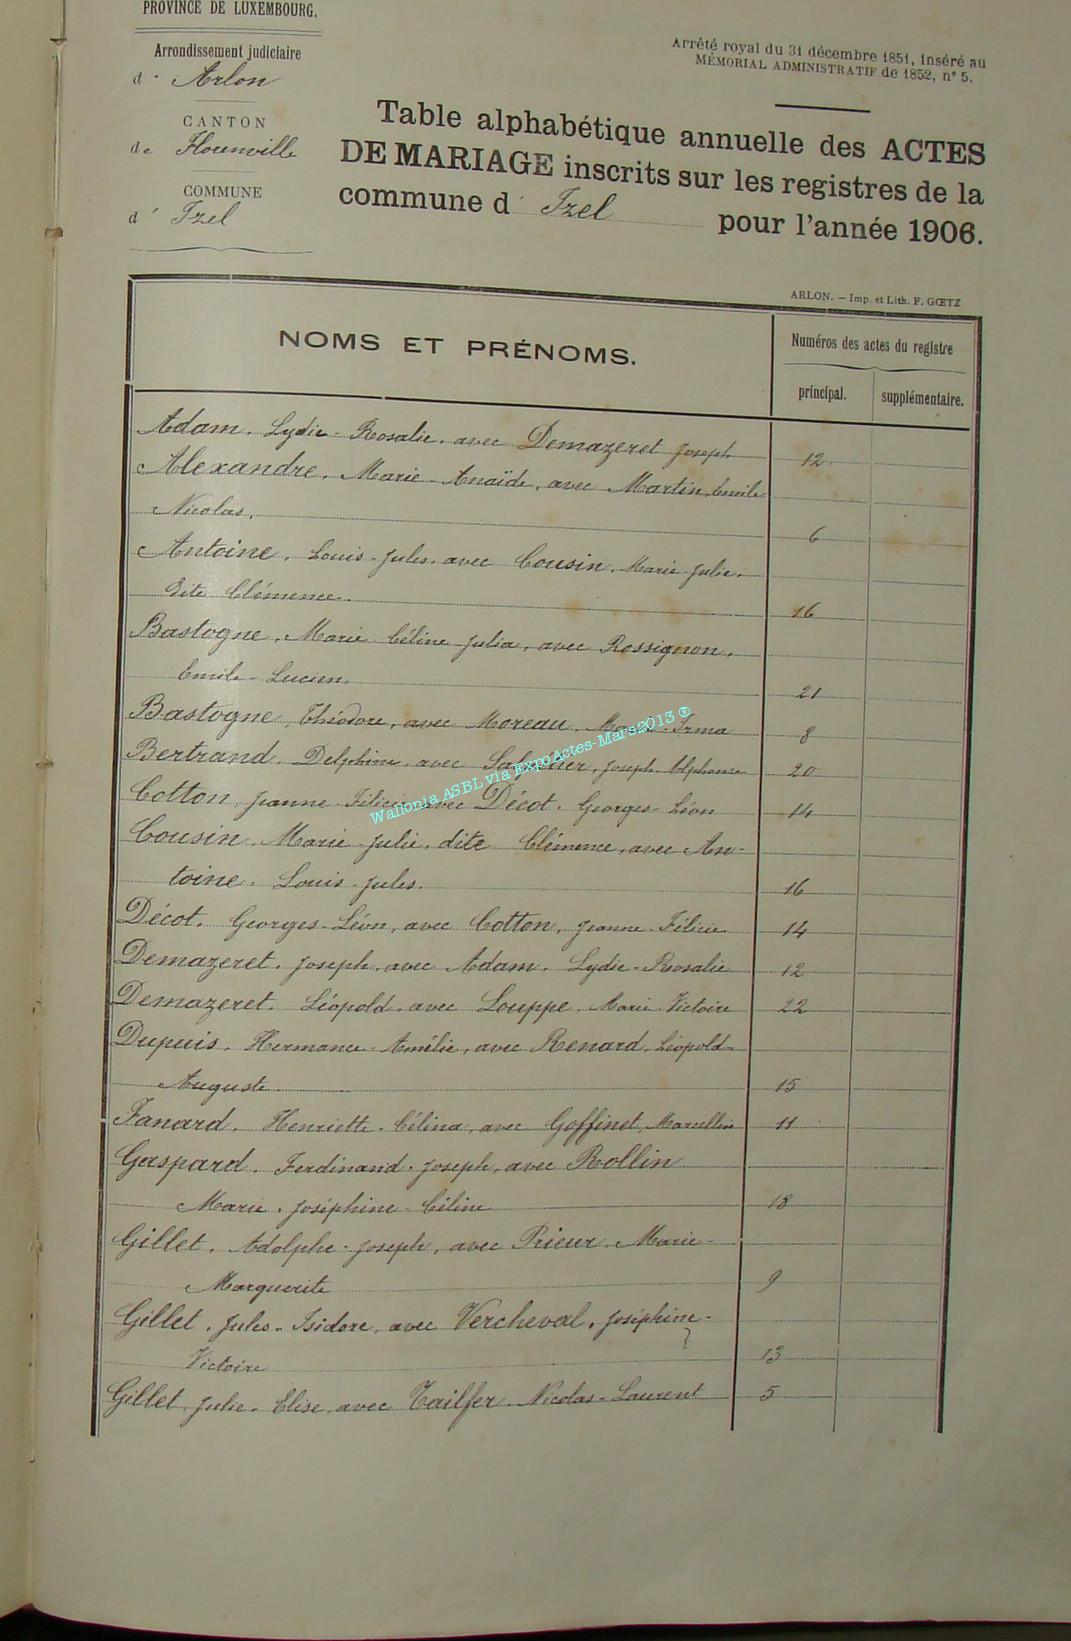 PROVINCE DE LUXEMBOURG.
Arrondissement judiciaire
d' Arlon
CANTON
de Florenville
COMMUNE
d' Izel
Arrêté royal du 31 décembre 1851, inséré au
MÉMORIAL ADMINISTRATIF de 1852, n° 5.
Table alphabétique annuelle des ACTES
DE MARIAGE inscrits sur les registres de la
commune d' Izel pour l'année 1906.
ARLON. — Imp. et Lith. F. GŒTZ
NOMS ET PRÉNOMS.
Numéros des actes du registre
principal. supplémentaire.
Adam, Lydie-Rosalie, avec Demazeret Joseph 12
Alexandre, Marie-Anaïde, avec Martin, Emile
Nicolas. 6
Antoine, Louis-Jules, avec Cousin, Marie-Julie,
dite Clémence. 16
Bastogne, Marie-Céline-Julia, avec Rossignon,
Emile-Lucien. 21
Bastogne, Théodore, avec Moreau, Irma 8
Bertrand, Delphine, avec Joseph-Alphonse 20
Cotton, Jeanne-Félicie avec Décot, Georges-Léon 14
Cousin, Marie-Julie, dite Clémence, avec An-
toine, Louis-Jules. 16
Décot, Georges-Léon, avec Cotton, Jeanne-Félicie 14
Demazeret, Joseph, avec Adam, Lydie-Rosalie 12
Demazeret, Léopold, avec Louppe, Marie-Victoire 22
Dupuis, Hermance-Amélie, avec Renard, Léopold-
Auguste 15
Fanard, Henriette-Célina, avec Goffinet, Marcellin 11
Gaspard, Ferdinand-Joseph, avec Rollin
Marie-Joséphine-Céline 18
Gillet, Adolphe-Joseph, avec Prieur, Marie-
Marguerite 9
Gillet, Jules-Isidore, avec Vercheval, Joséphine-
Victoire 13
Gillet, Julie-Elise, avec Tailfer, Nicolas-Laurent 5
Wallonia ASBL via ExpoActes-Mars2013 ®